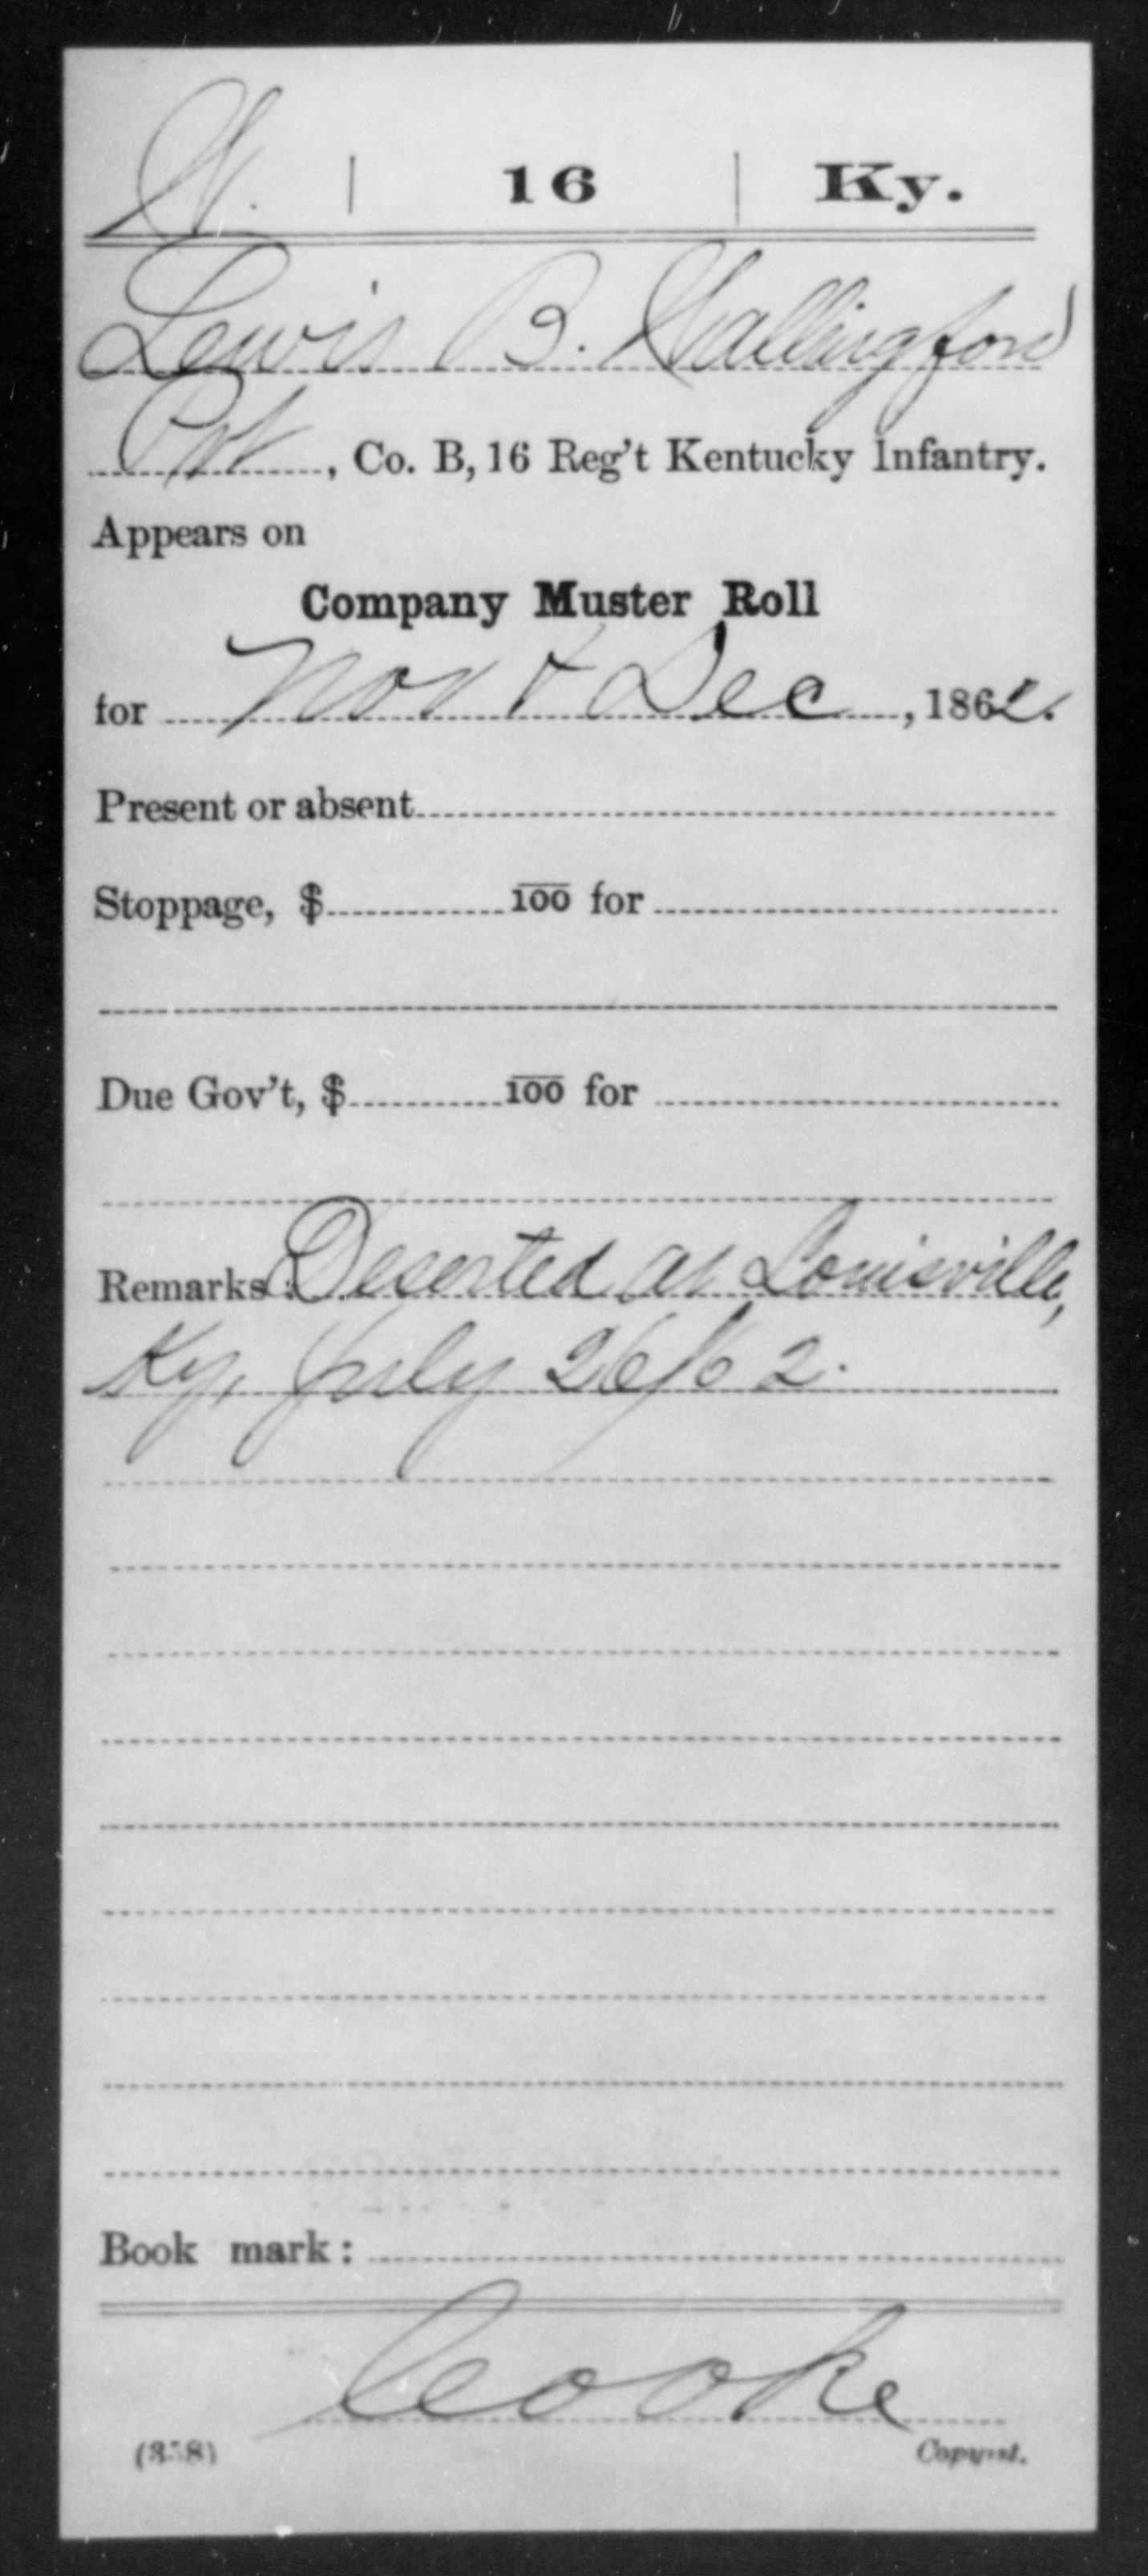 W. | 16 | Ky.
Lewis B. Wallingford
Pvt, Co. B, 16 Reg't Kentucky Infantry.
Appears on
Company Muster Roll
for Nov & Dec, 1862.
Present or absent
Stoppage, $ 100 for
Due Gov't, $ 100 for
Remarks: Deserted at Louisville,
Ky, July 26/62.
Book mark:
Cooke
(358) Copyist.